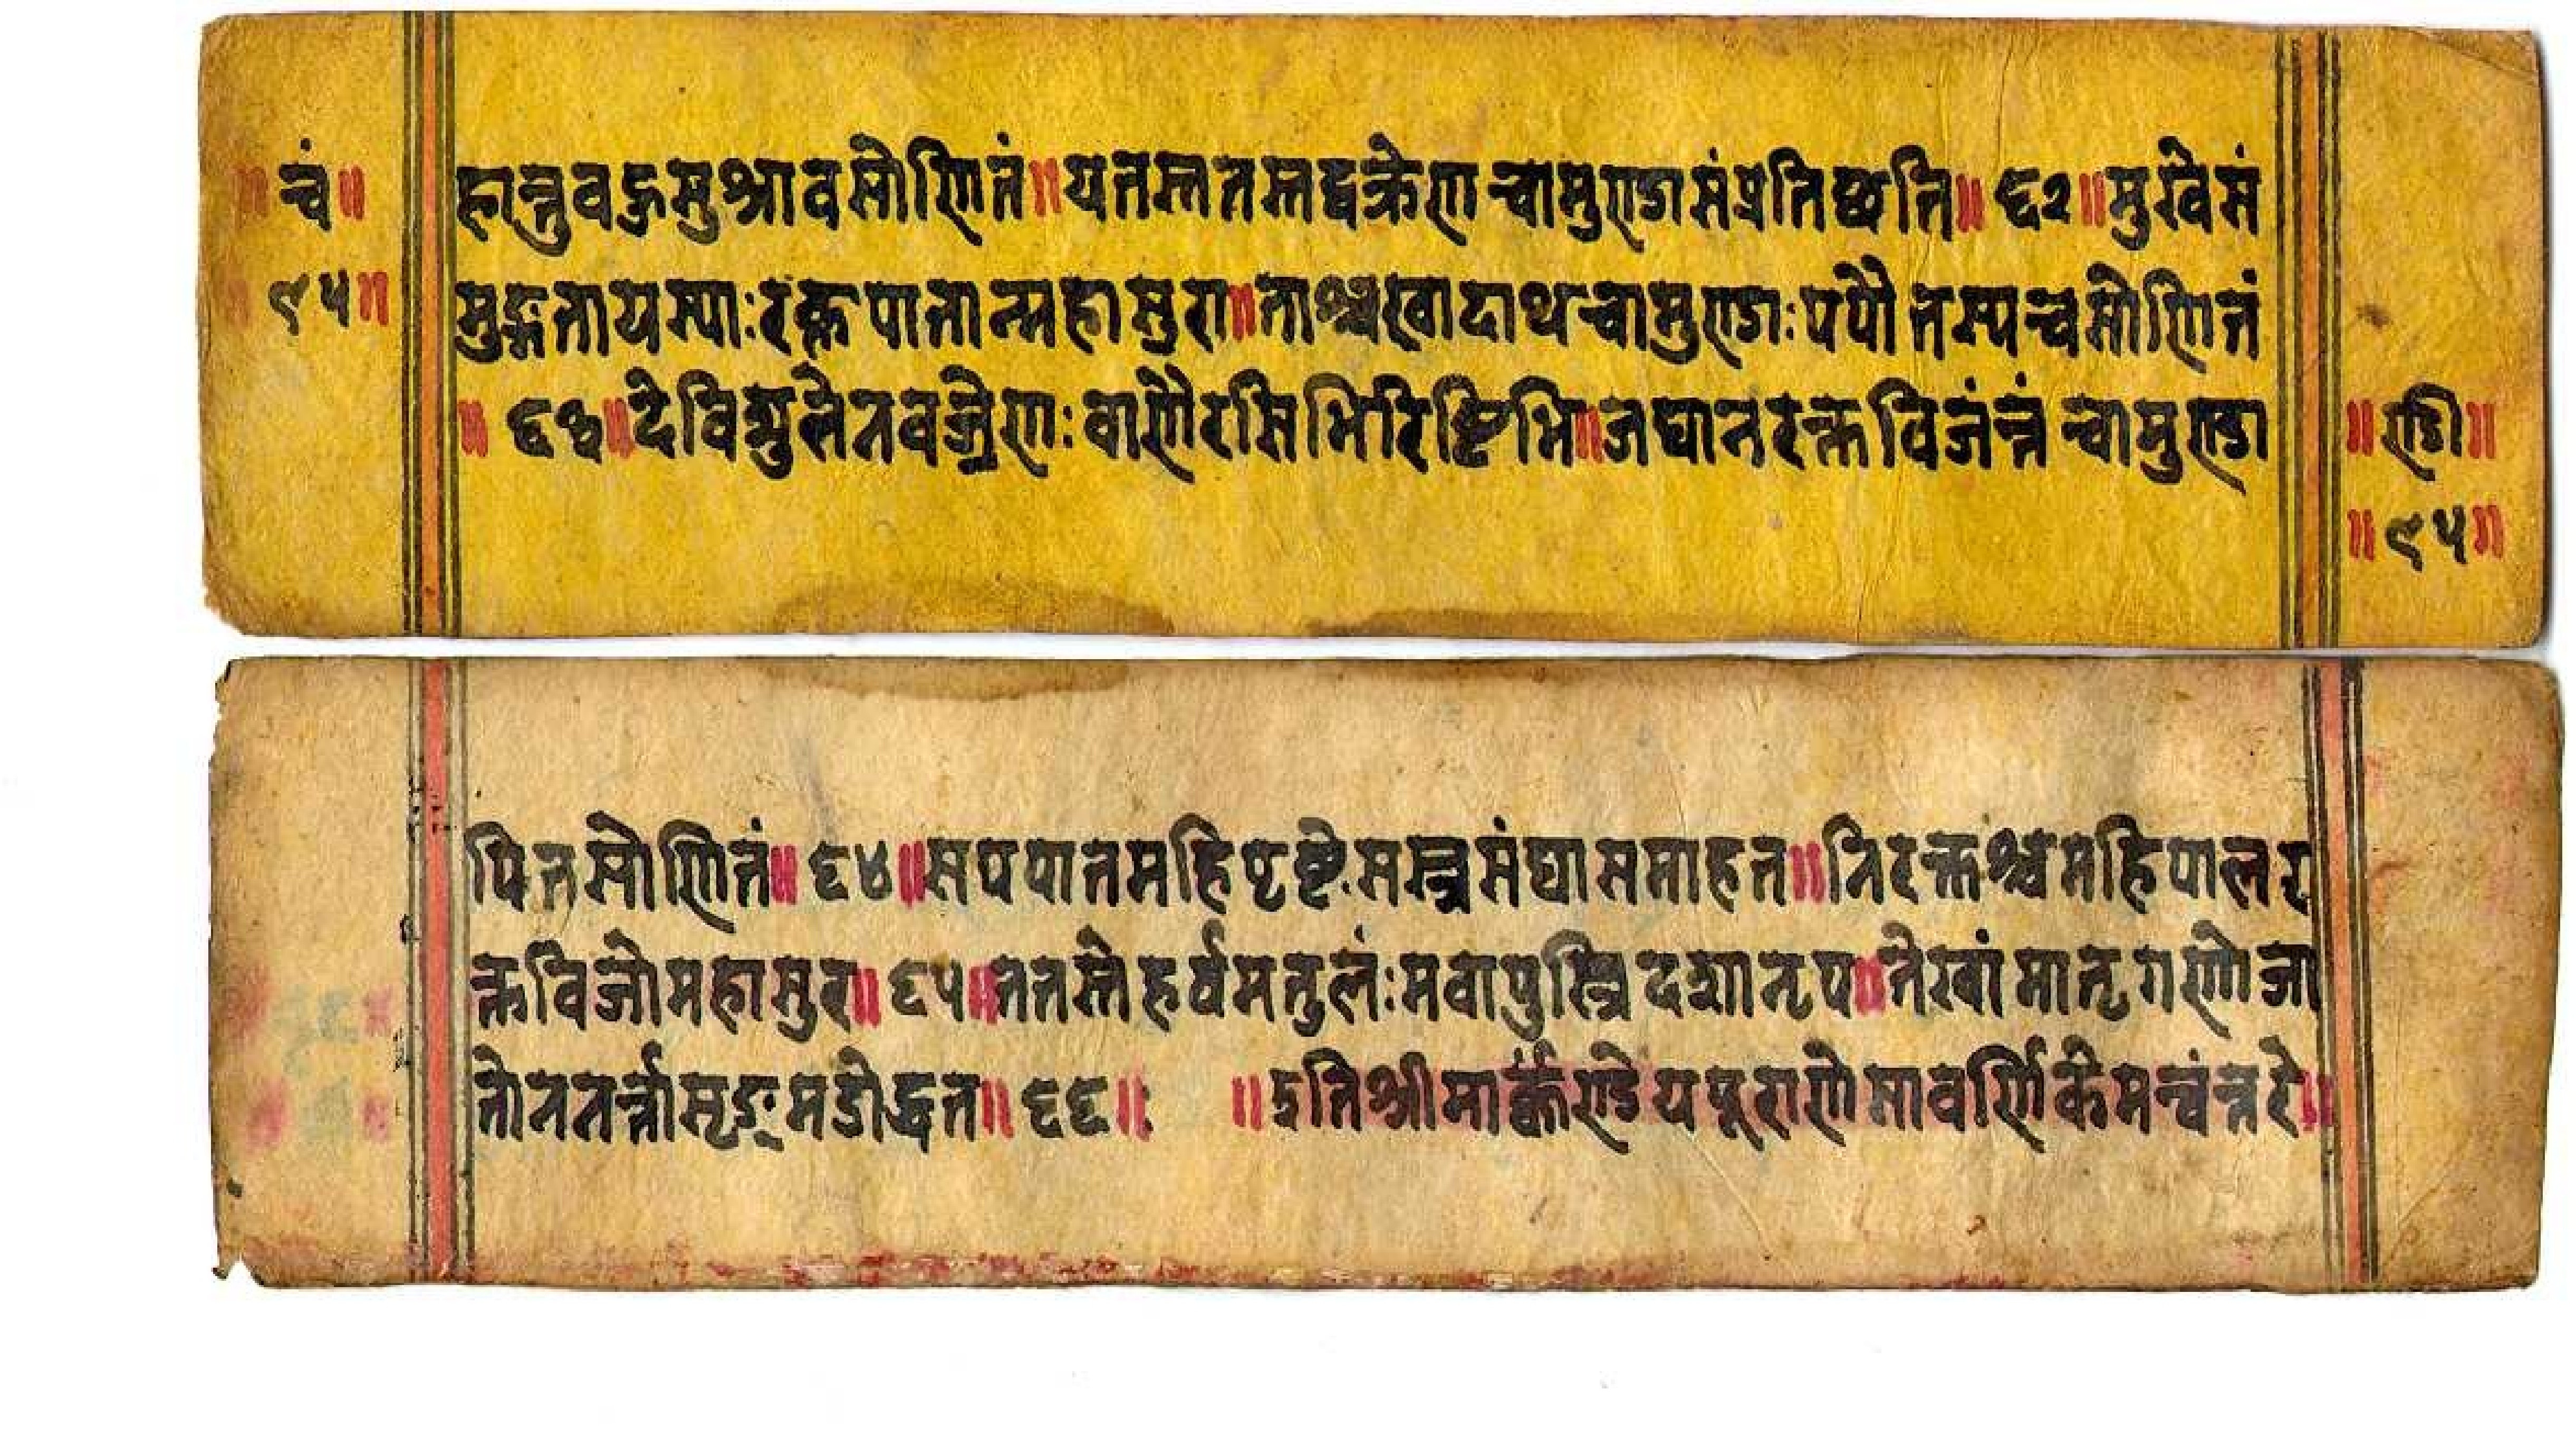 ॥ चं॥
॥ ९५॥
हान्तुवद्रुमुश्रावसोणितं॥यतस्ततस्तद्वक्रेणचामुण्डासंप्रतिछति॥ ६२ ॥मुखेसं
मुद्गतायस्याःरक्तपातान्महासुरा॥ताश्चखादाथचामुण्डाःपपौतस्यचसोणितं
॥ ६३॥देविशुलेनवज्रेणःवाणैरसिभिरिष्टिभि॥जघानरक्तविजंन्नंचामुण्डा
॥ण्डी॥
॥९५॥
पितसोणितं॥ ६४॥सपपातमहिपृष्टे.सस्त्रसंघासमाहत॥निरक्तश्चमहिपालर
क्तविजोमहासुर॥ ६५॥ततस्तेहर्षमतुलंःमवापुस्त्रिदशानृप॥तेखांमातृगणोजा
तोननर्त्तासृङ्मडोद्धत॥ ६६॥ ॥इतिश्रीमार्क्कण्डेयपूराणेसावर्णिकेमन्वंन्तरे॥